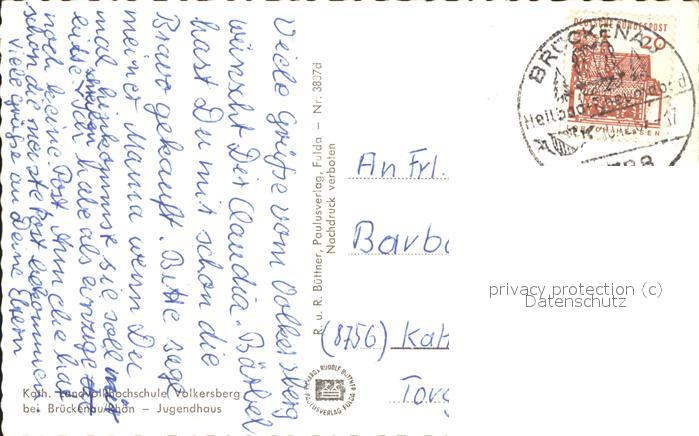 Viele Grüße vom Volkersberg
wünscht Dir Claudia. Bärbel
hast Du mir schon die
Bravo gekauft. Bitte sage
meiner Mama wenn Du
mal hinkommst sie soll mir
schreiben
hab als einzige
noch keine Post. Annche hat
schon die Post bekommen
Viele Grüße an Deine Eltern
Kath. Landvolkhochschule Volkersberg
bei Brückenau/Rhön — Jugendhaus
R. u. R. Büttner, Paulusverlag, Fulda — Nr. 3837d
Nachdruck verboten
RICHARD & RUDOLF BÜTTNER
PAULUSVERLAG FULDA
DEUTSCHE BUNDESPOST
20
BRÜCKENAU
An Frl.
Barb
(8756) Kah
privacy protection (c)
Datenschutz